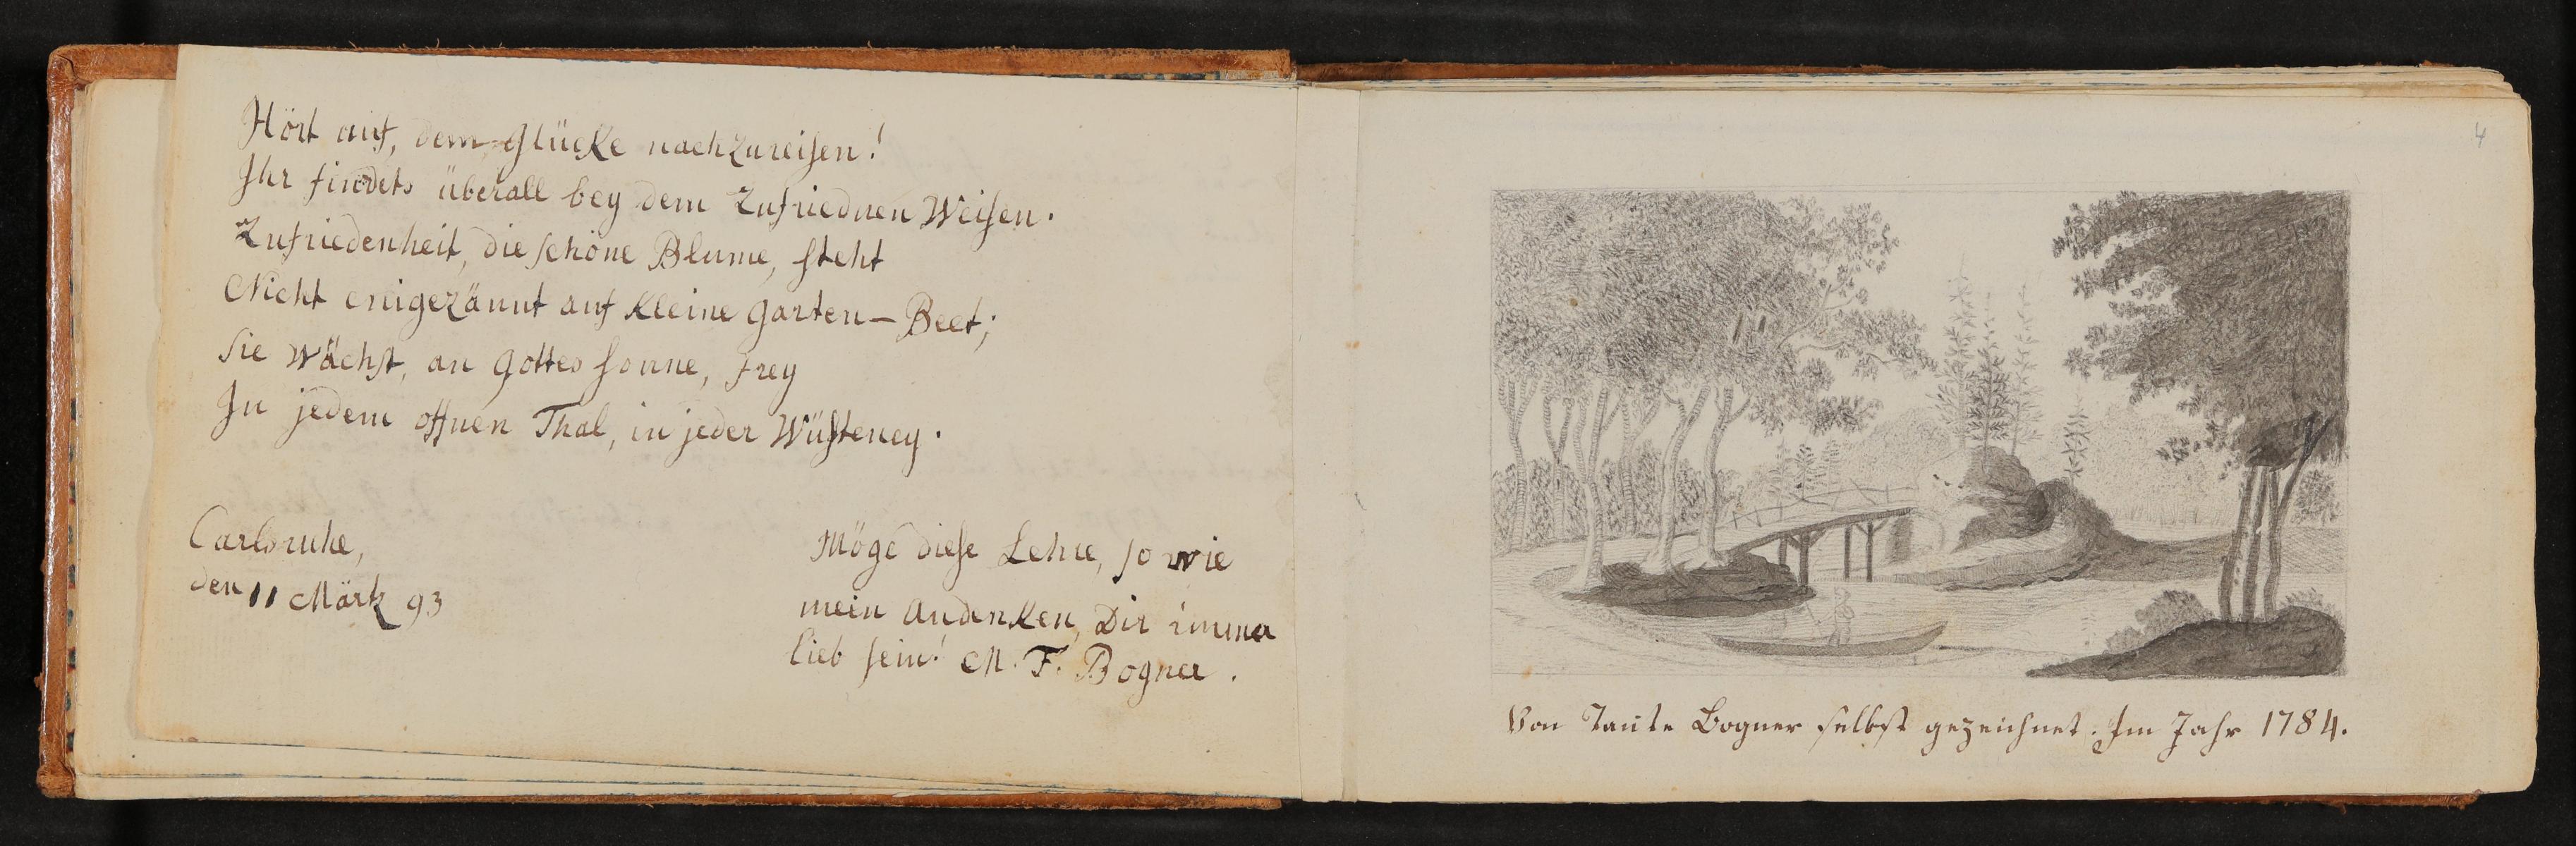 Hört auf, dem Glücke nachzureisen!
Ihr findets überall bey dem Zufriednen Weisen.
Zufriedenheit, die schöne Blume, steht
Nicht eingezäunt auf kleine Garten-Beet;
Sie wächst, an Gottes Sonne, frey
In jedem offnen Thal, in jeder Wüsteney.
Carlsruhe,
den 11 Märtz 93
Möge diese Lehre, so wie
mein Andenken, Dir immer
lieb sein! M. F. Bogner.
4
Von Tante Bogner selbst gezeichnet. Im Jahr 1784.